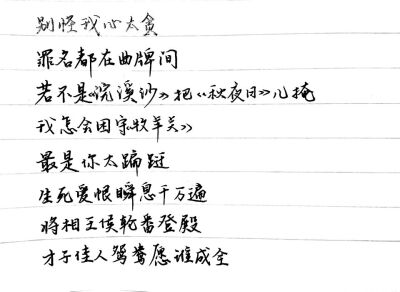 别怪我心太贪
罪名都在曲牌间
若不是《浣溪沙》把《秋夜月》儿掩
我怎会困守《牧羊关》
最是你太蹁跹
生死爱恨瞬息千万遍
将相王侯轮番登殿
才子佳人鸳鸯愿谁成全